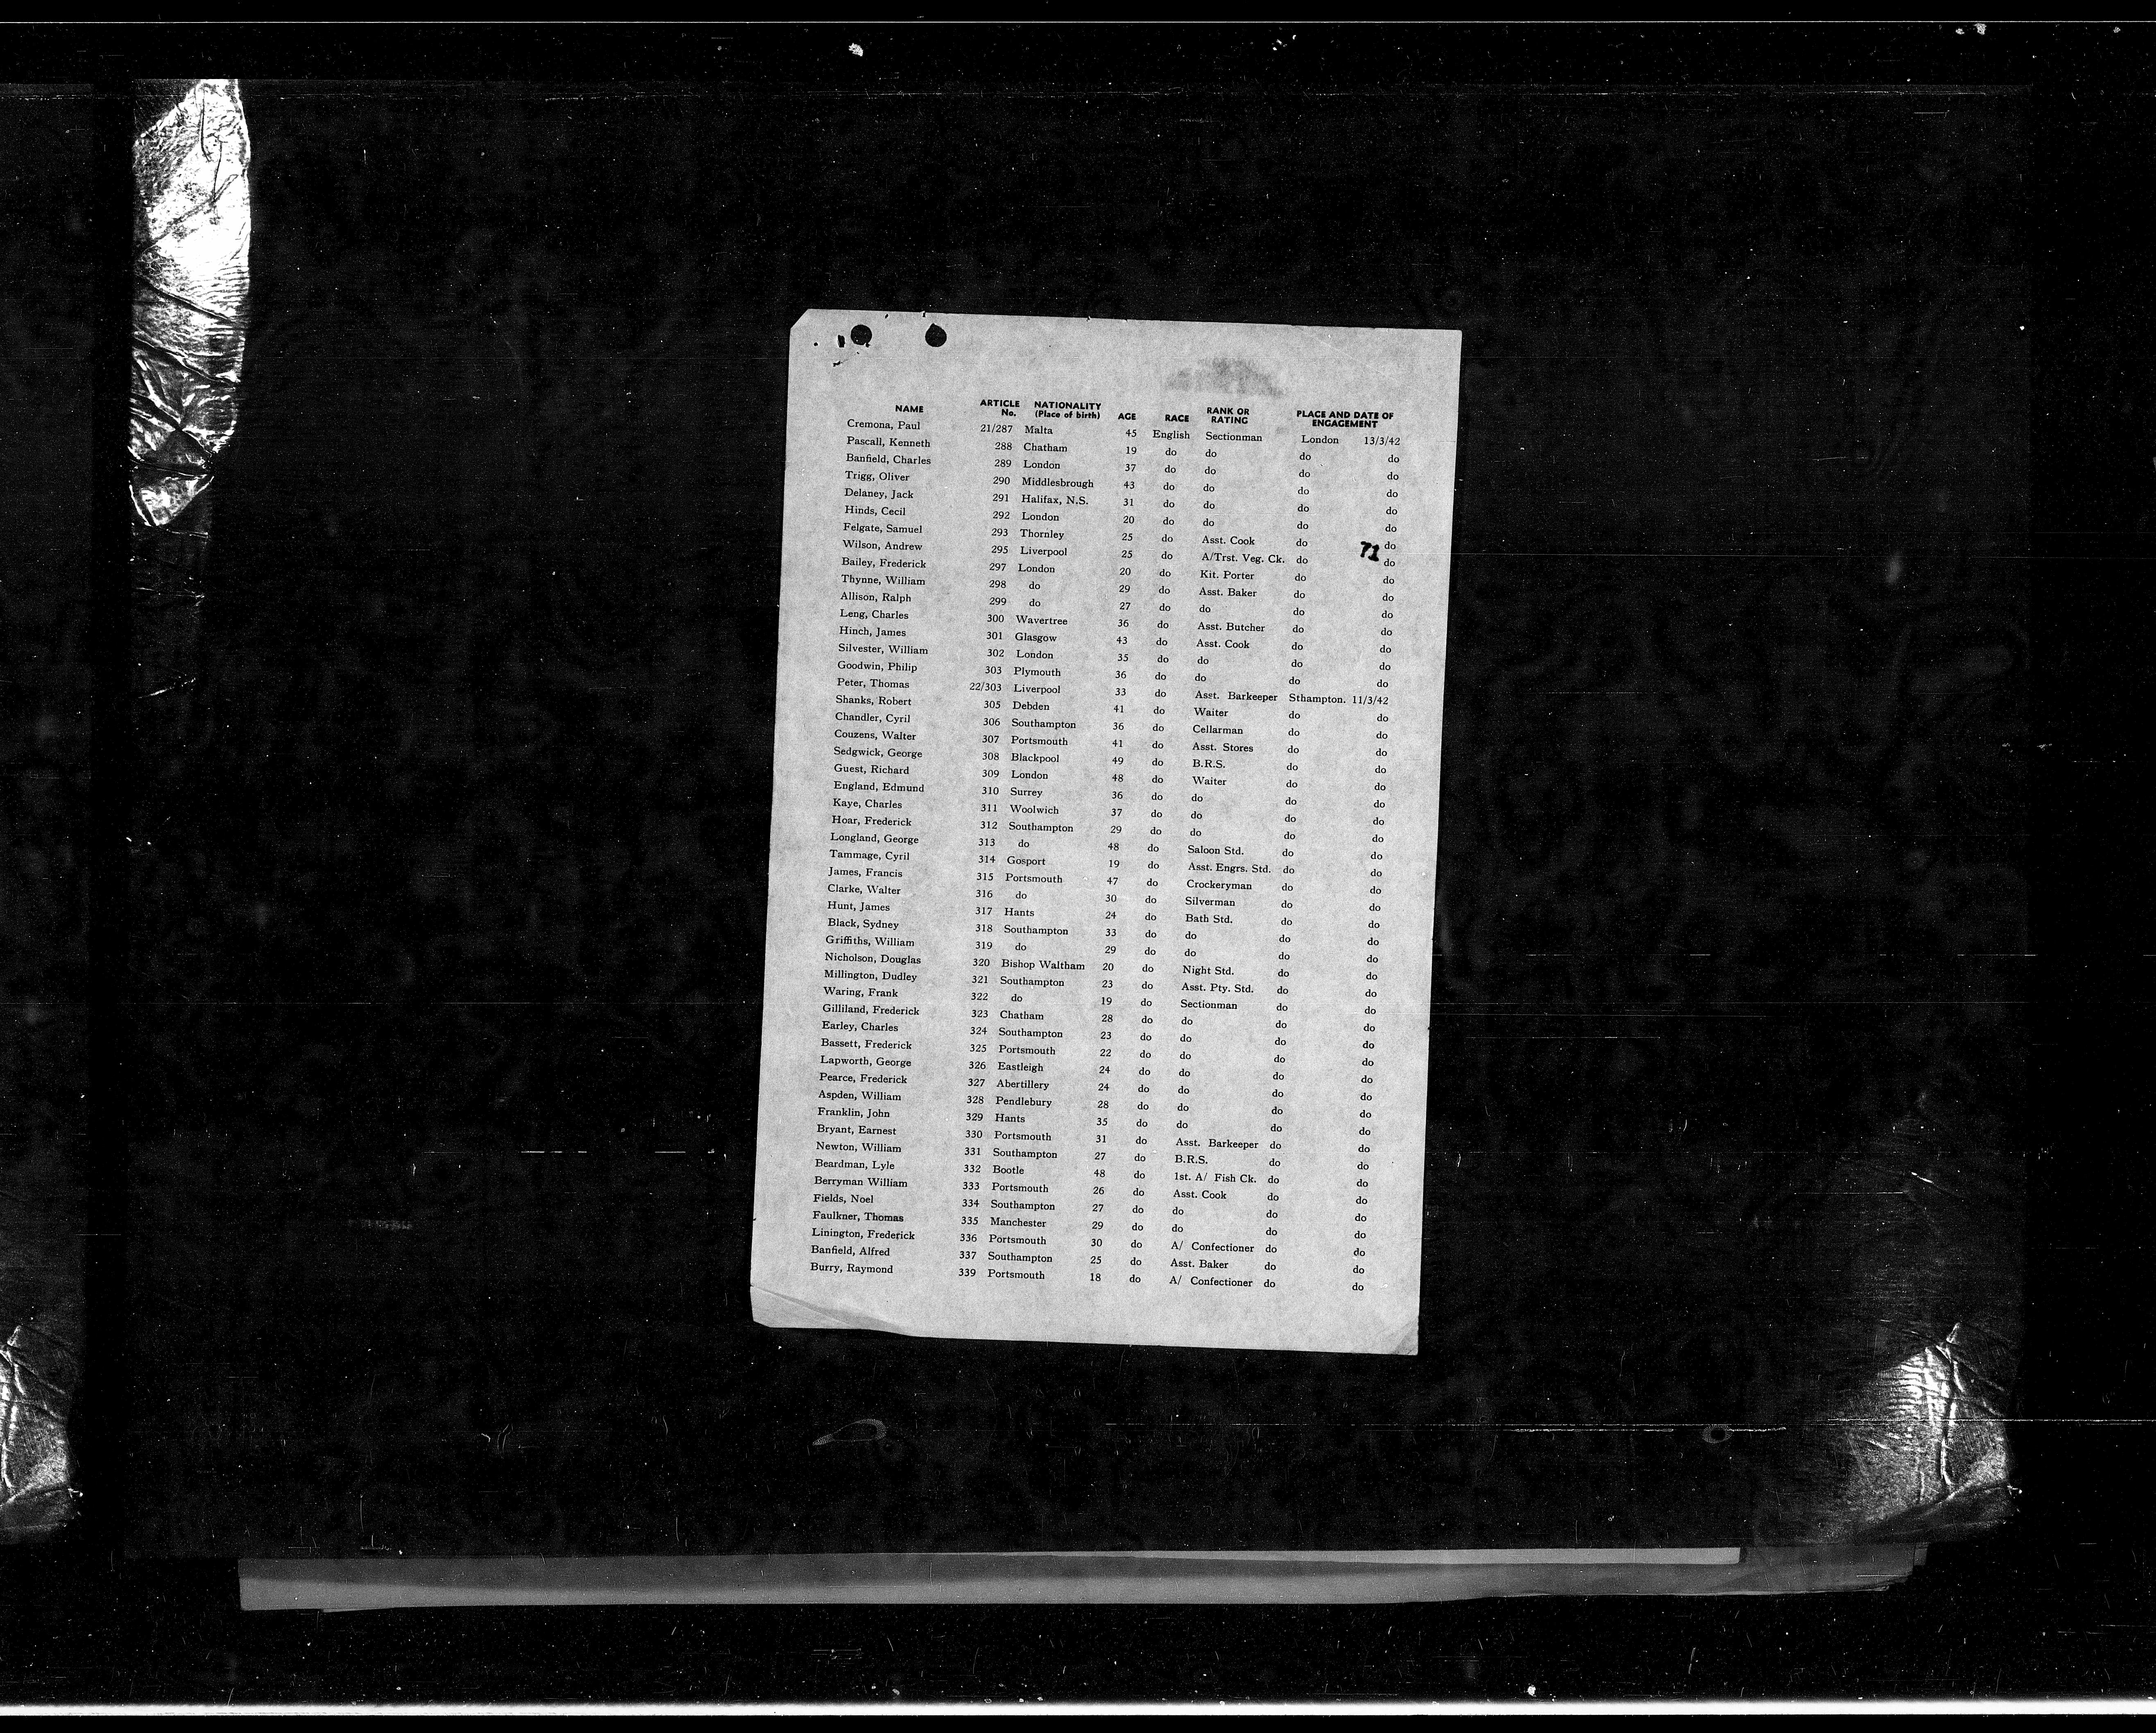 NAME ARTICLE No. NATIONALITY (Place of birth) AGE RACE RANK OR RATING PLACE AND DATE OF ENGAGEMENT
Cremona, Paul 21/287 Malta 45 English Sectionman London 13/3/42
Pascall, Kenneth 288 Chatham 19 do do do do
Banfield, Charles 289 London 37 do do do do
Trigg, Oliver 290 Middlesbrough 43 do do do do
Delaney, Jack 291 Halifax, N.S. 31 do do do do
Hinds, Cecil 292 London 20 do do do do
Felgate, Samuel 293 Thornley 25 do Asst. Cook do 71 do
Wilson, Andrew 295 Liverpool 25 do A/Trst. Veg. Ck. do do
Bailey, Frederick 297 London 20 do Kit. Porter do do
Thynne, William 298 do 29 do Asst. Baker do do
Allison, Ralph 299 do 27 do do do do
Leng, Charles 300 Wavertree 36 do Asst. Butcher do do
Hinch, James 301 Glasgow 43 do Asst. Cook do do
Silvester, William 302 London 35 do do do do
Goodwin, Philip 303 Plymouth 36 do do do do
Peter, Thomas 22/303 Liverpool 33 do Asst. Barkeeper Sthampton. 11/3/42
Shanks, Robert 305 Debden 41 do Waiter do do
Chandler, Cyril 306 Southampton 36 do Cellarman do do
Couzens, Walter 307 Portsmouth 41 do Asst. Stores do do
Sedgwick, George 308 Blackpool 49 do B.R.S. do do
Guest, Richard 309 London 48 do Waiter do do
England, Edmund 310 Surrey 36 do do do do
Kaye, Charles 311 Woolwich 37 do do do do
Hoar, Frederick 312 Southampton 29 do do do do
Longland, George 313 do 48 do Saloon Std. do do
Tammage, Cyril 314 Gosport 19 do Asst. Engrs. Std. do do
James, Francis 315 Portsmouth 47 do Crockeryman do do
Clarke, Walter 316 do 30 do Silverman do do
Hunt, James 317 Hants 24 do Bath Std. do do
Black, Sydney 318 Southampton 33 do do do do
Griffiths, William 319 do 29 do do do do
Nicholson, Douglas 320 Bishop Waltham 20 do Night Std. do do
Millington, Dudley 321 Southampton 23 do Asst. Pty. Std. do do
Waring, Frank 322 do 19 do Sectionman do do
Gilliland, Frederick 323 Chatham 28 do do do do
Earley, Charles 324 Southampton 23 do do do do
Bassett, Frederick 325 Portsmouth 22 do do do do
Lapworth, George 326 Eastleigh 24 do do do do
Pearce, Frederick 327 Abertillery 24 do do do do
Aspden, William 328 Pendlebury 28 do do do do
Franklin, John 329 Hants 35 do do do do
Bryant, Earnest 330 Portsmouth 31 do Asst. Barkeeper do do
Newton, William 331 Southampton 27 do B.R.S. do do
Beardman, Lyle 332 Bootle 48 do 1st. A/ Fish Ck. do do
Berryman William 333 Portsmouth 26 do Asst. Cook do do
Fields, Noel 334 Southampton 27 do do do do
Faulkner, Thomas 335 Manchester 29 do do do do
Linington, Frederick 336 Portsmouth 30 do A/ Confectioner do do
Banfield, Alfred 337 Southampton 25 do Asst. Baker do do
Burry, Raymond 339 Portsmouth 18 do A/ Confectioner do do